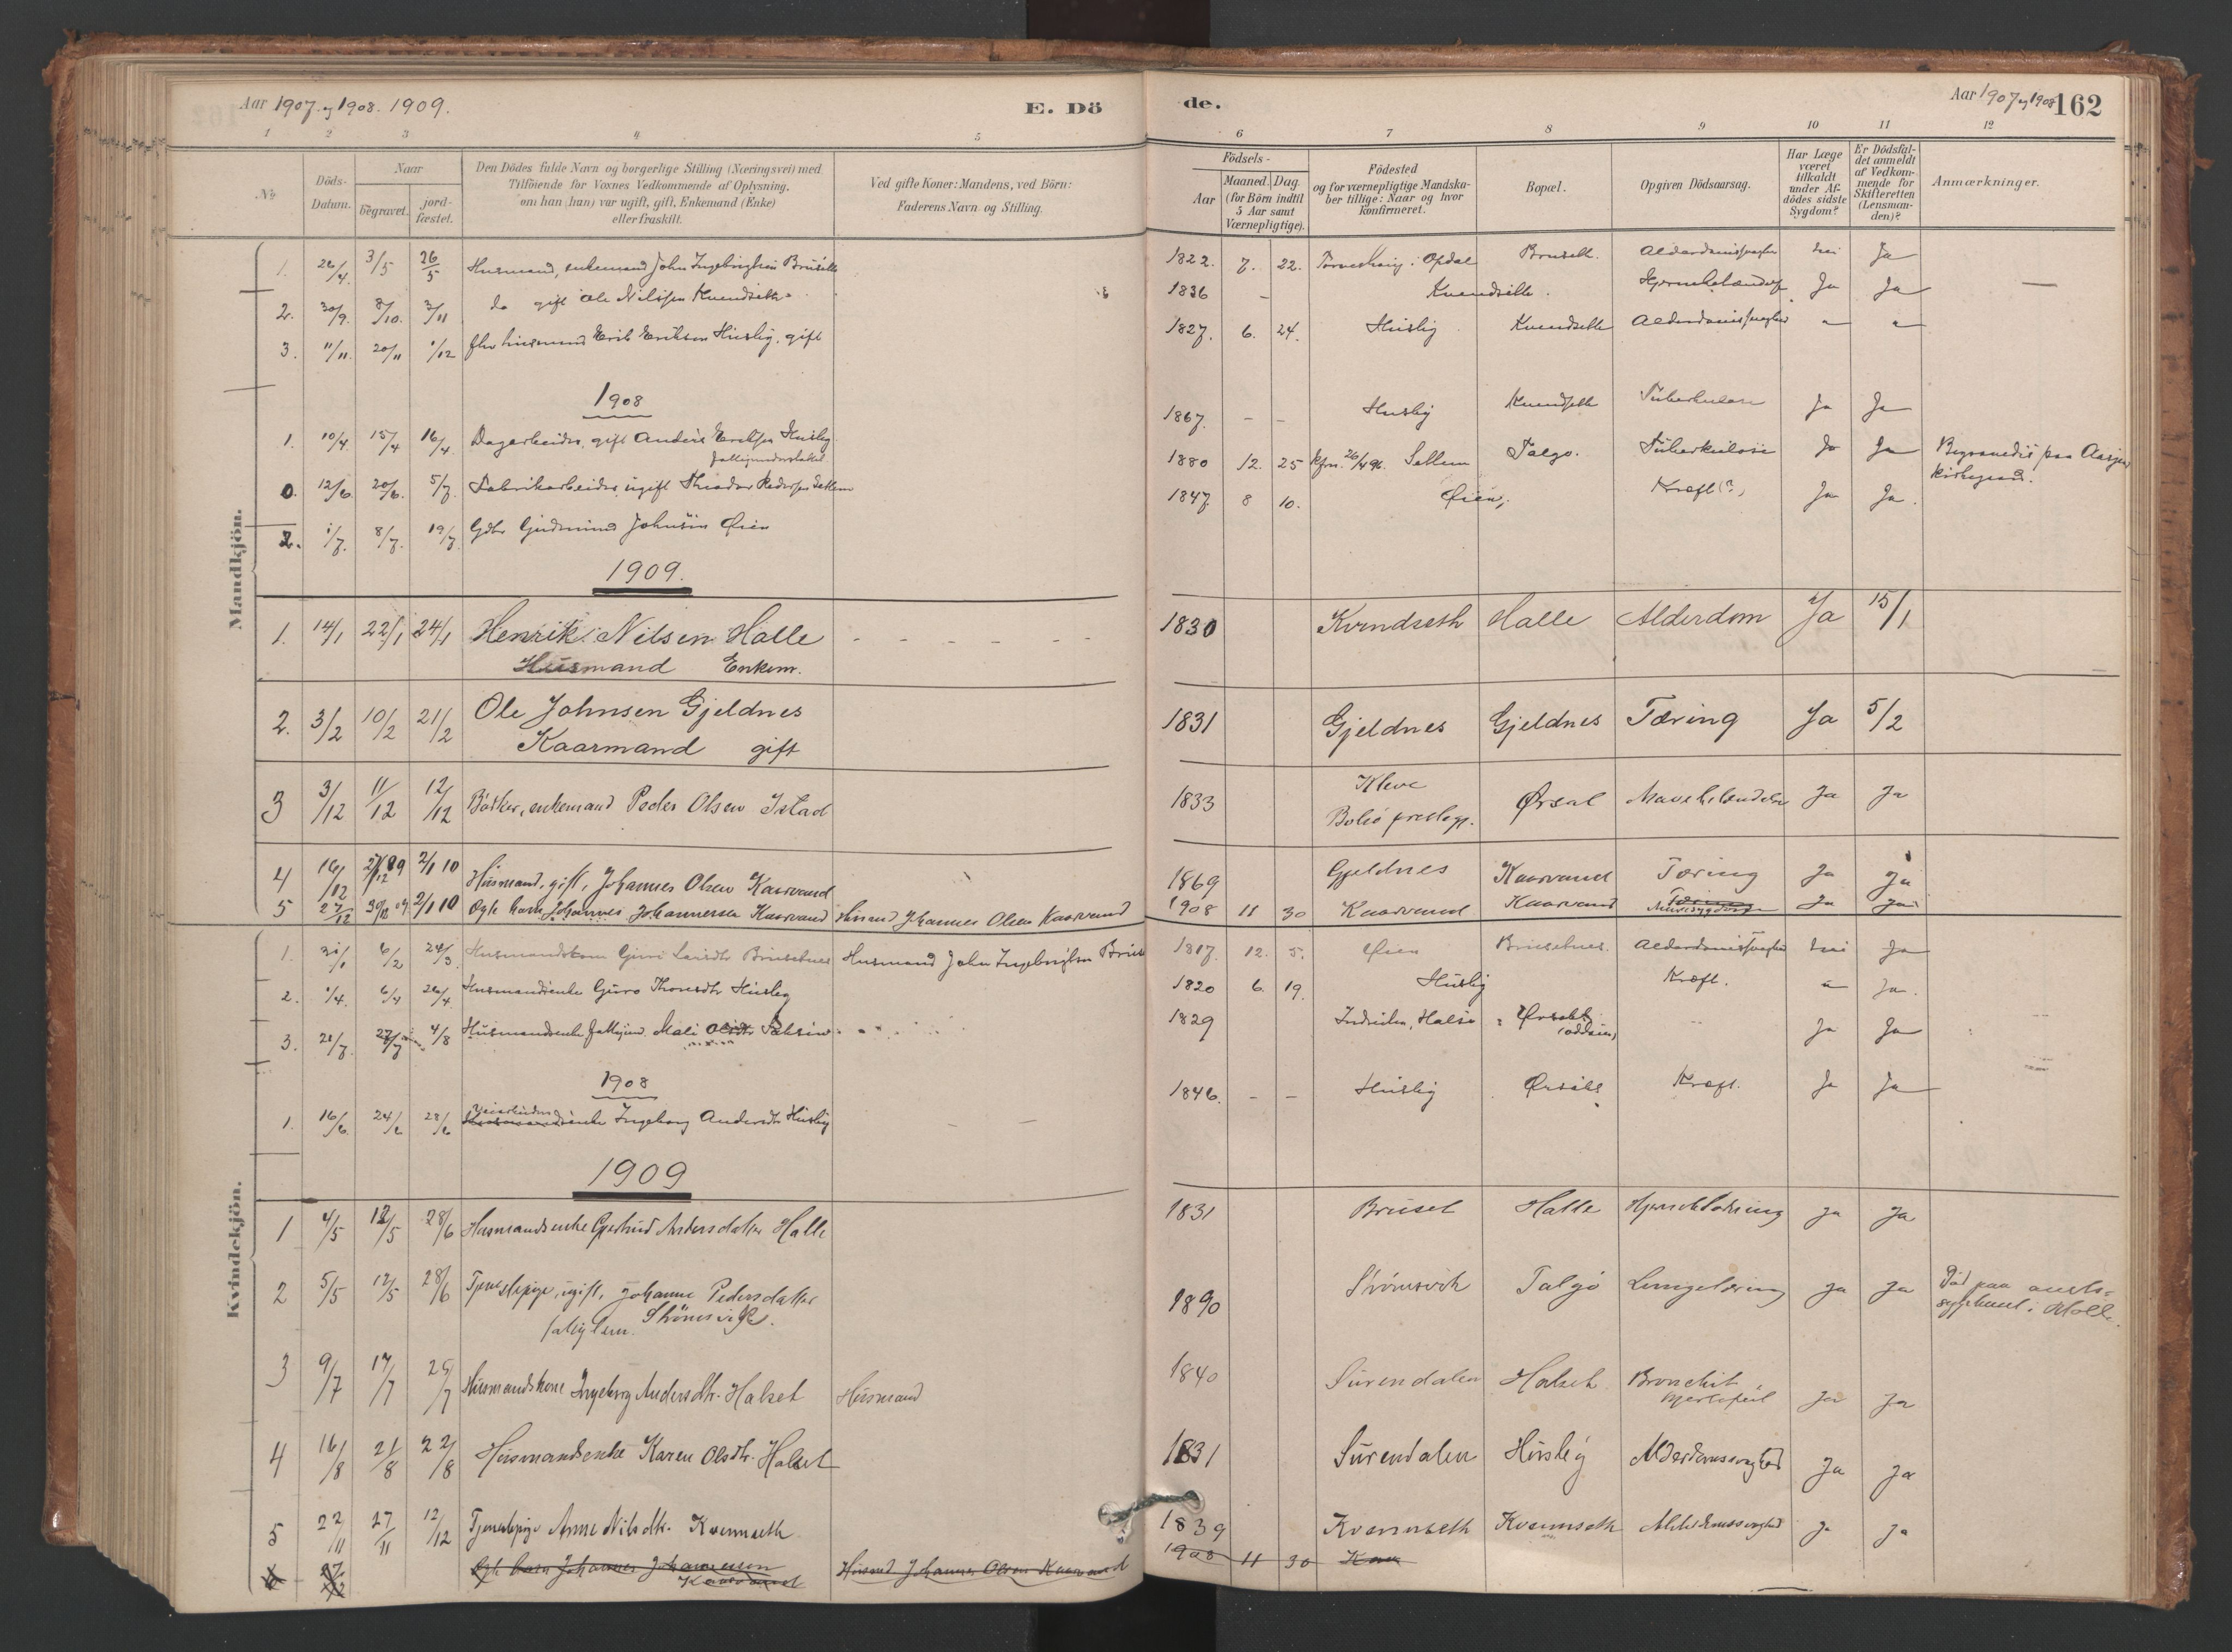 Aar 1907 og 1908. 1909.
E. Dö
de.
Aar 1907 og 1908
162
1 2 3 4 5
6 7 8 9 10 11 12
No
Döds-
Datum.
Naar
begravet.
jord-
fæstet.
Den Dödes fulde Navn og borgerlige Stilling (Næringsvei) med
Tilföiende for Voxnes Vedkommende af Oplysning,
om han (hun) var ugift, gift, Enkemand (Enke)
eller fraskilt.
Ved gifte Koner: Mandens, ved Börn:
Faderens Navn og Stilling.
Födsels-
Aar
Maaned.
Dag.
(for Börn indtil
5 Aar samt
Værnepligtige).
Födested
og for værnepligtige Mandska-
ber tillige: Naar og hvor
konfirmeret.
Bopæl.
Opgiven Dödsaarsag.
Har Læge
været
tilkaldt
under Af-
dödes sidste
Sygdom?
Er Dödsfal-
det anmeldt
af Vedkom-
mende for
Skifteretten
(Lensman-
den)?
Anmærkninger.
Mandkjön.
1. 26/4 3/5 26/5 Husmand, enkemand John Ingebrigtsen 1822. 7. 22. Opdal Bruseth. Ja
2. 30/9. 8/10. 3/11 do gift Ole Nilssen Kvendseth 1836 - Kvendseth. Ja Ja
3. 11/11. 20/11 1/12 fhv husmand Erik Eriksen Husby, gift 1827. 6. 24. Husby Kvendseth " "
1908
1. 10/4 15/4 16/4 Dagarbeider, gift Anders Eriksen Husby 1867. - - Husby Kvendseth Tuberkulose Ja Ja
0. 12/6 20/6. 5/7. Fabrikarbeider, ugift Theodor Pedersen Settem 1880 12. 25 kfm. 26/4 96. Settem Talgø. Tuberkulose Ja Ja Begravedes paa
kirkegaard.
2. 1/7. 8/7. 19/7. Gdbr Gudmund Johnsen Øien 1847. 8 10. Øien, Kræft (?) Ja Ja.
1909.
1. 14/1 22/1 24/1 Henrik Nilsen Halle - - - - - - 1830 Kvendseth Halle Alderdom Ja 15/1
Husmand Enkem.
2. 3/2 10/2 21/2 Ole Johnsen Gjeldnes 1831 Gjeldnes Gjeldnes Tæring Ja 5/2
Kaarmand gift
3 3/12 11/12 12/12 Bödker, enkemand Peder Olsen Istad 1833 Kleve
Bolsö prestegj. Ørsal Ja Ja
4 16/12 2/1 10 Husmand, gift, Johannes Olsen Kaarvand 1869 Gjeldnes Kaarvand Tæring Ja Ja
5 27/12 30/12 09. 2/1 10 Ægte barn Johannes Johannesen Kaarvand Husmand Johannes Olsen Kaarvand 1908 11 30 Kaarvand Kaarvand Tæring Ja Ja
Kvindekjön.
1. 6/2 24/3. Husmandskone Guri Husmand John Ingebrigtsen 1817. 12. 5. Øien Ja
2. 1/4. 6/4 26/4 Husmandsenke Guro Husby 1820 6. 19. Husby Kræft. " Ja.
3. 21/7. 27/7 4/8 Husmandsenke Mali 1829 Halsa Ja Ja
1908
1. 16/6. 24/6 28/6 Ingeborg Andersdtr Husby - - 1846. - - Husby Kræft. Ja Ja
1909
1 4/5 12/5 28/6 Husmandsenke Gjertrud Andersdatter Halle 1831 Bruset Halle Ja Ja
2 5/5 12/5 28/6 Tjenestepige, ugift, Johanne Pedersdatter
Strömsvik. 1890 Strömsvik Talgø Lungetæring Ja Ja Död paa amts-
sygehuset i Molde.
3 9/7 17/7 25/7 Husmandskone Ingeborg Andersdtr. Halset Husmand 1840 Surendalen Halset Bronchit,
hjertefeil Ja Ja
4 16/8 21/8 22/8 Husmandsenke Karen Olsdtr. Halset 1831 Surendalen Husby Alderdomssvaghed Ja Ja
5 22/11 27/11 12/12 Tjenestepige Anne Nilsdtr. Kvennseth 1839 Kvennseth Kvennseth Alderdomssvaghed Ja Ja
6 27/12 Ægte barn Johannes Johannessen
Kaarvand Husmd Johannes Olsen Kaarvand 1908 11 30